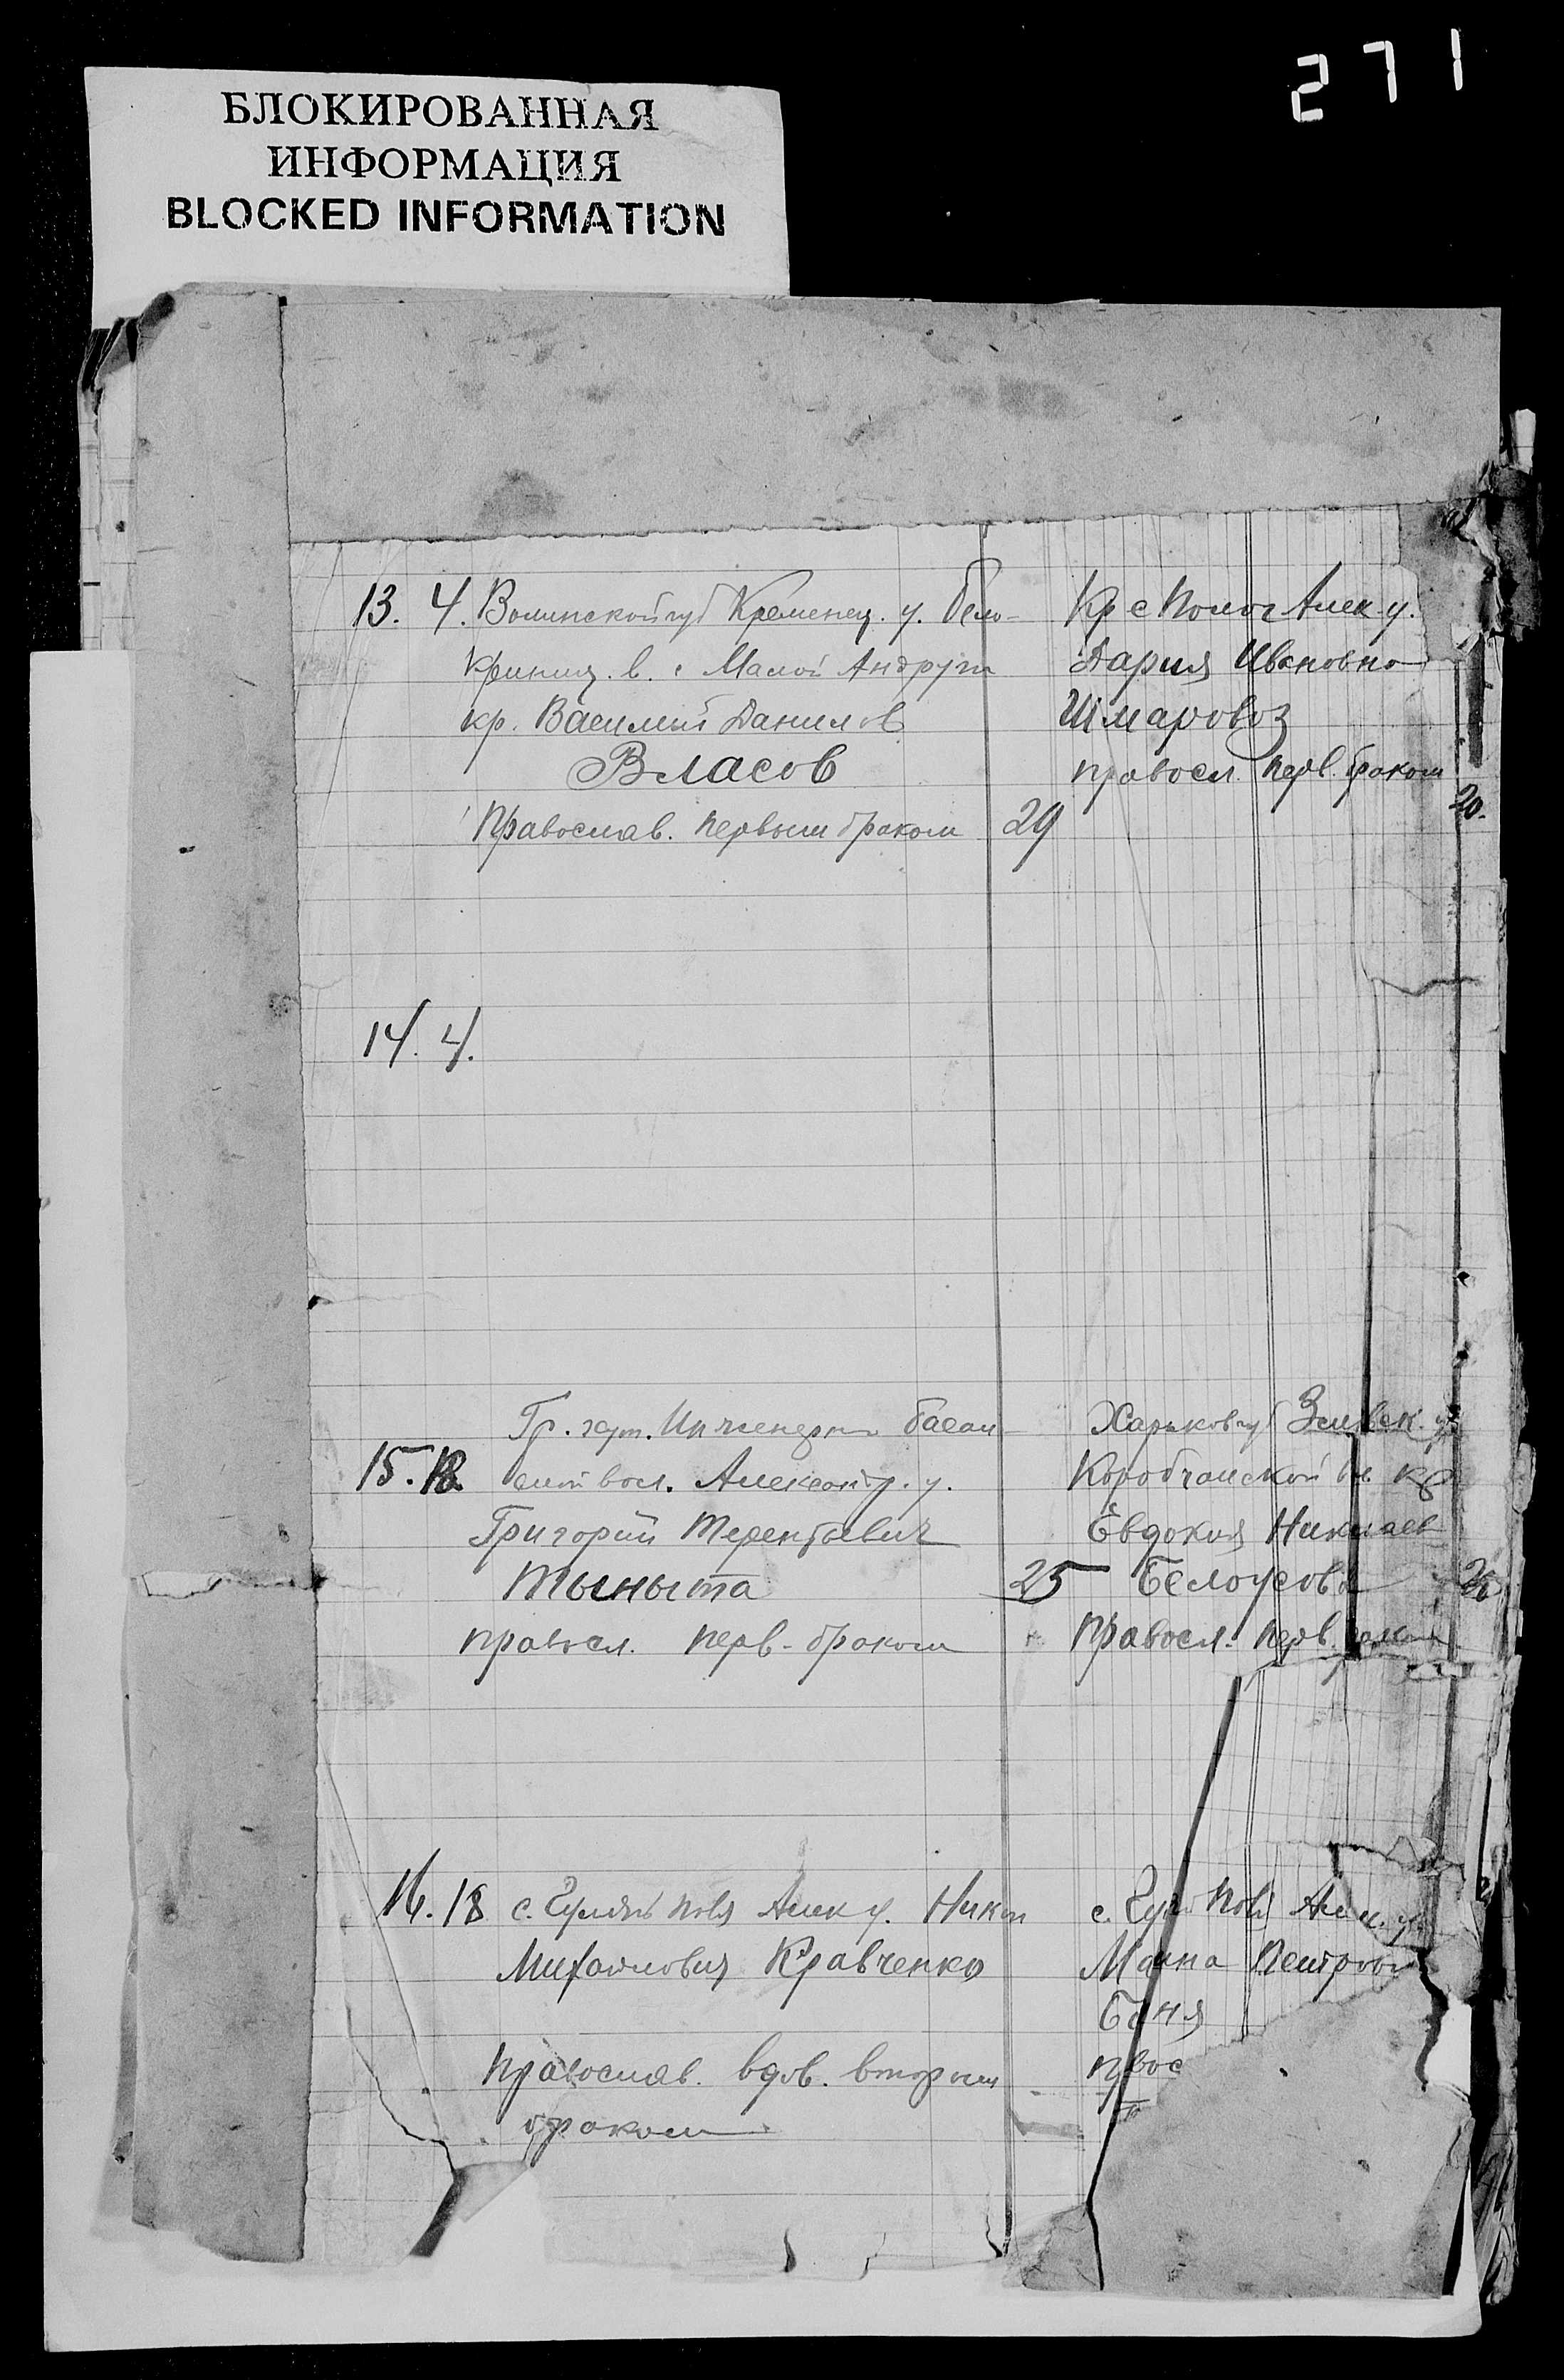 271
БЛОКИРОВАННАЯ
ИНФОРМАЦИЯ
BLOCKED INFORMATION
13. 4. Волинской губ Кременец. у. Бело-
криниц. в. с Малой Андруги
кр. Василий Данилов
Власов
Православ. первым браком 29
Кр с Полог Алек. у.
Дария Ивановна
Шмаровоз
правосл. перв. браком
20.
14. 4.
15. 18.
Гр. хут.
вол. Александр. у.
Григорий Терентьевич
Тыныта 25
правосл. перв. браком
Харьков губ Змиевск. у.
Коробчанской вл. кр
Евдокия Николаев
Белоусова
правосл. перв. браком
16. 18 с. Гуляй Поля Алек у. Никит
Михайлович Кравченко
православ. вдов. вторым
браком
с. Гул Поля Алек. у.
Петров
прво с
II